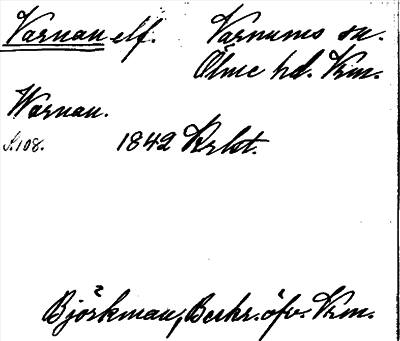 Varnan elf. Varnums sn.
Ölme hd. Vrm.
Warnan.
S. 108. 1842 Vrlst.
Björkman, Beskr. öfv. Vrm.